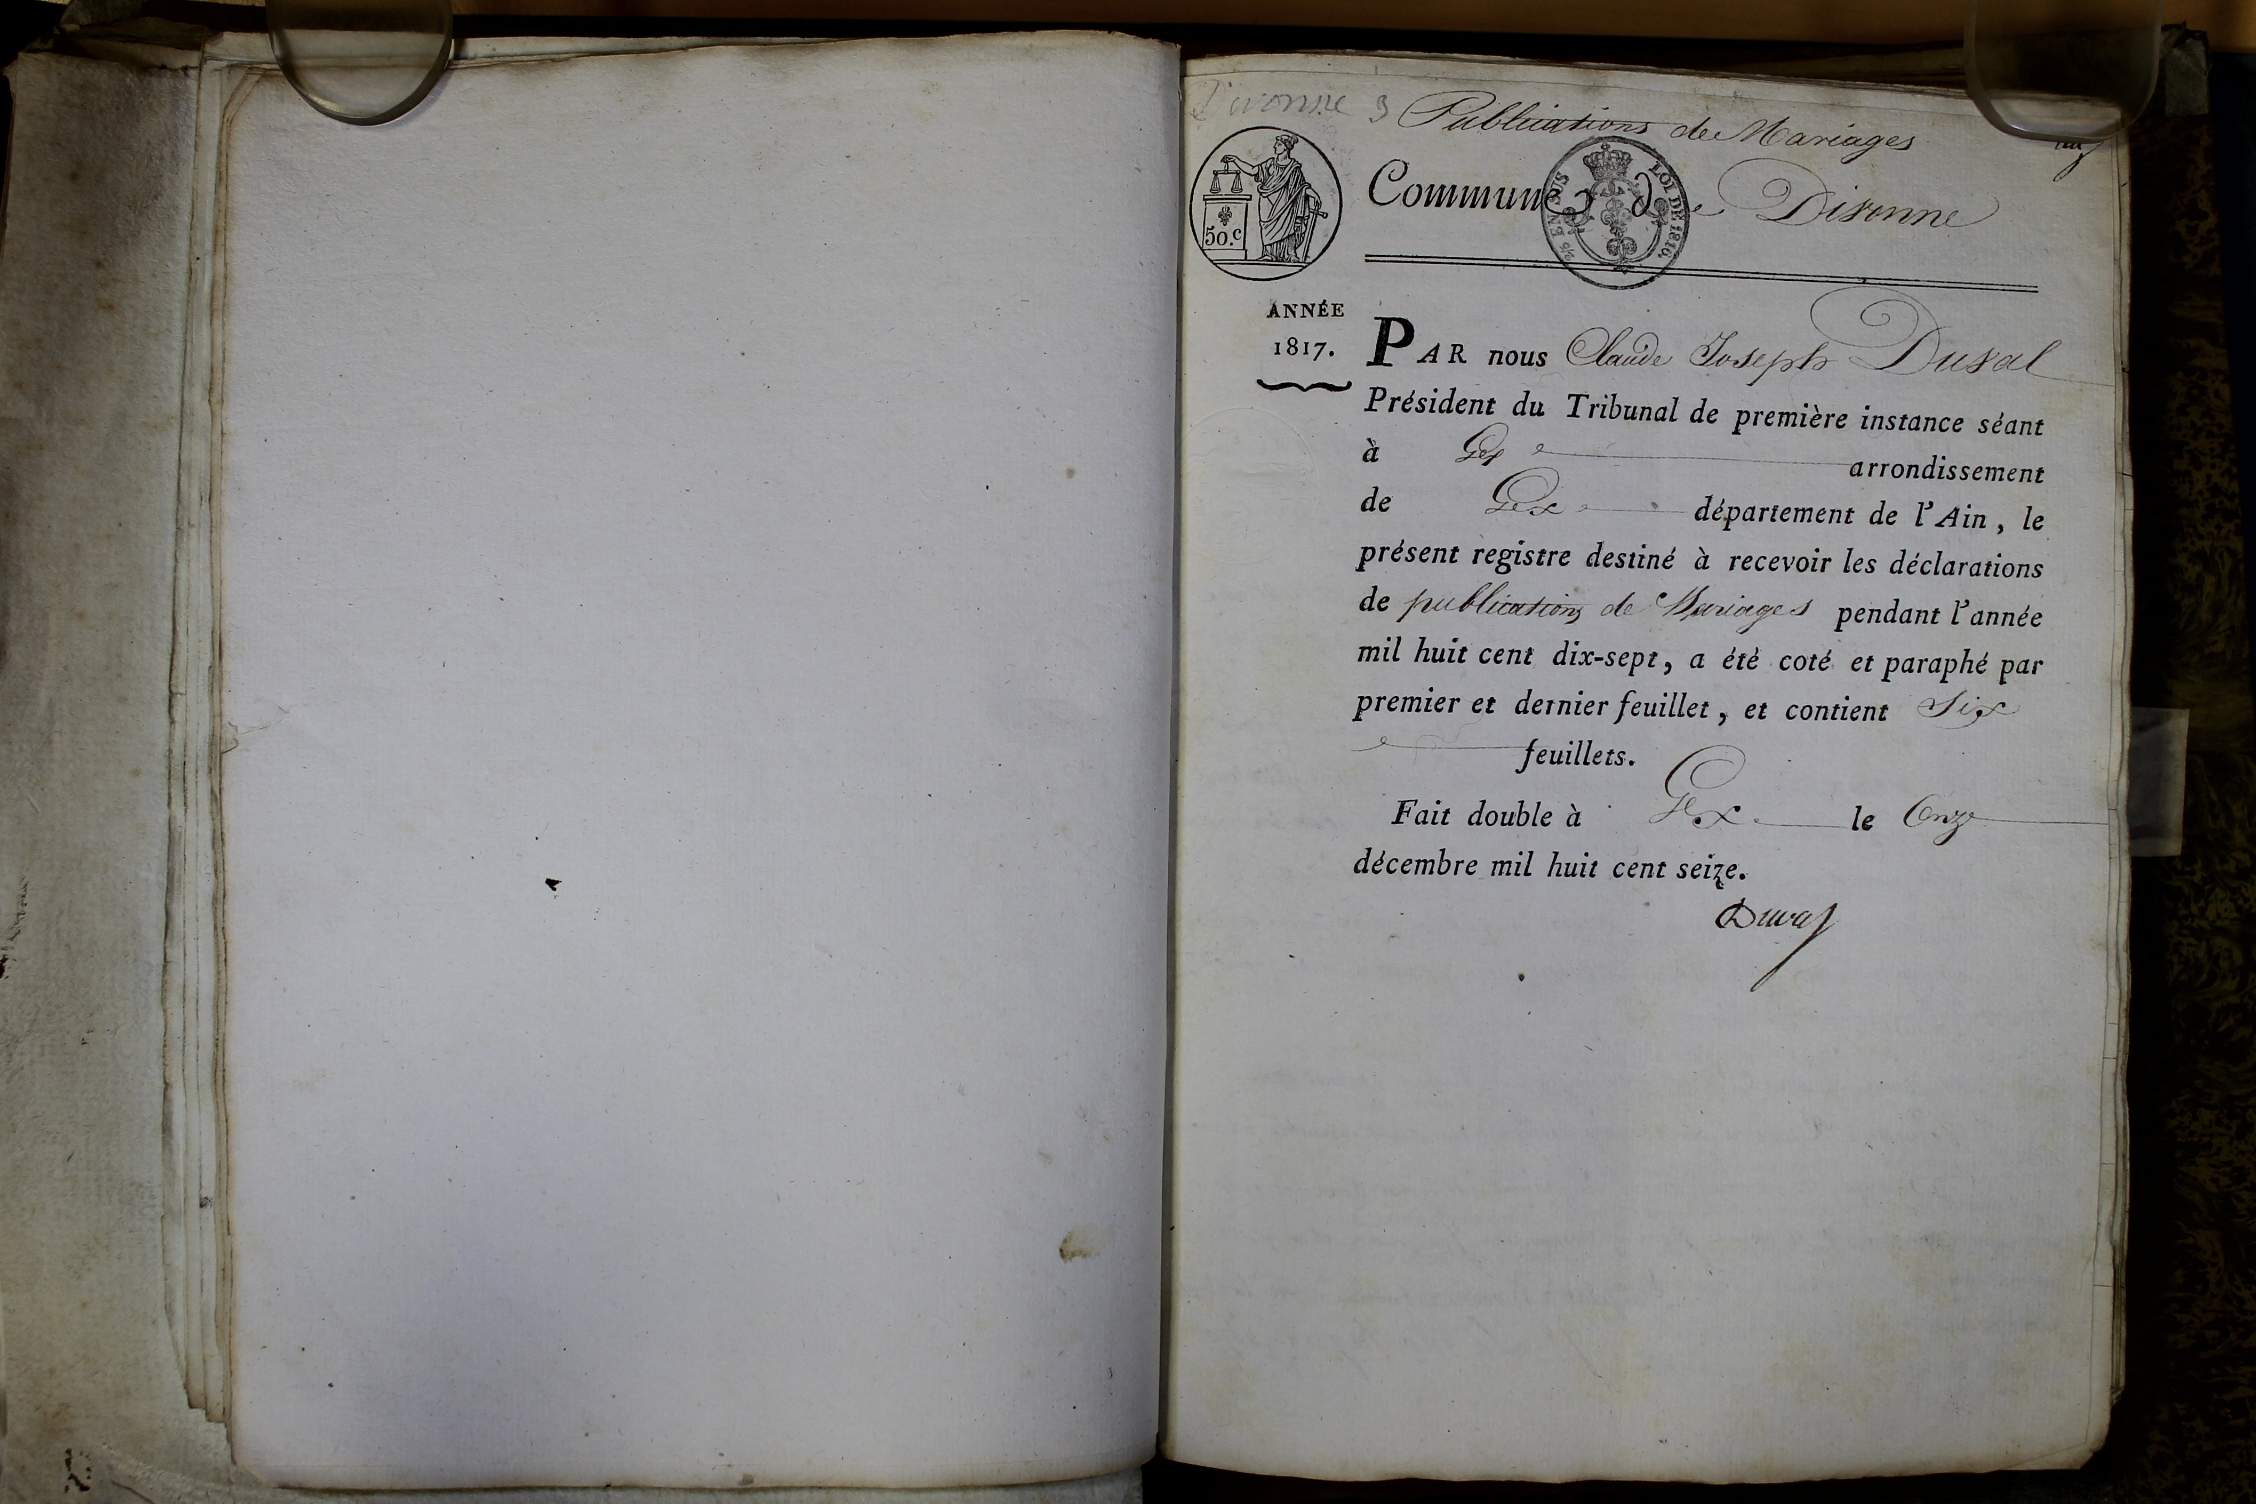 Divonne 3
Publications de Mariages
Commune de Divonne
50.c
EN SUS
LOI DE 1816.
ANNÉE
1817.
PAR nous Claude Joseph Duval
Président du Tribunal de première instance séant
à Gex arrondissement
de Gex département de l'Ain, le
présent registre destiné à recevoir les déclarations
de publications de Mariages pendant l'année
mil huit cent dix-sept, a été coté et paraphé par
premier et dernier feuillet, et contient Six
feuillets.
Fait double à Gex le Onze
décembre mil huit cent seize.
Duval